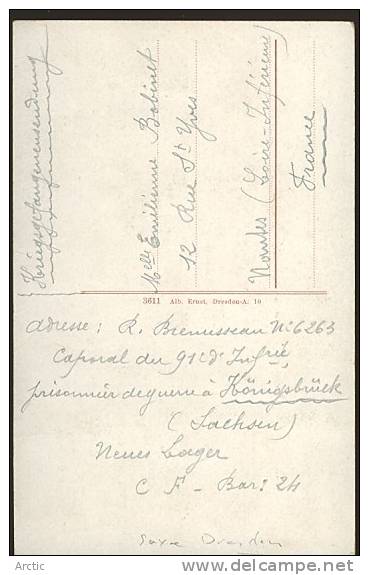 Kriegsgefangenensendung
Melle Emilienne Bobinet
12 Rue St Yves
Nantes (Loire-Inférieure)
France
3611 Alb. Ernst, Dresden-A. 10
Adresse : R. Bremusseau No 6263
Caporal du 91e d'Infrie
prisonnier de guerre à Königsbrück
(Sachsen)
Neues Lager
C F - Bar : 24
Saxe Dresden
Arctic
delcampe.net